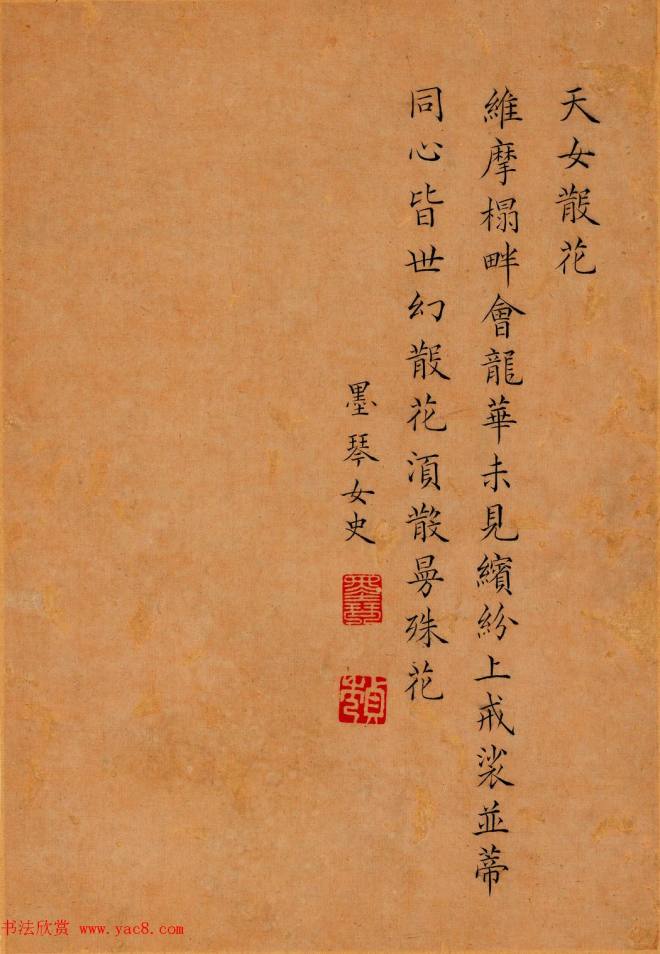 天女散花
維摩榻畔會龍華未見繽紛上戒裟並蒂
同心皆世幻散花湏散曼殊花
墨琴女史
墨琴
书法欣赏 www.yac8.com